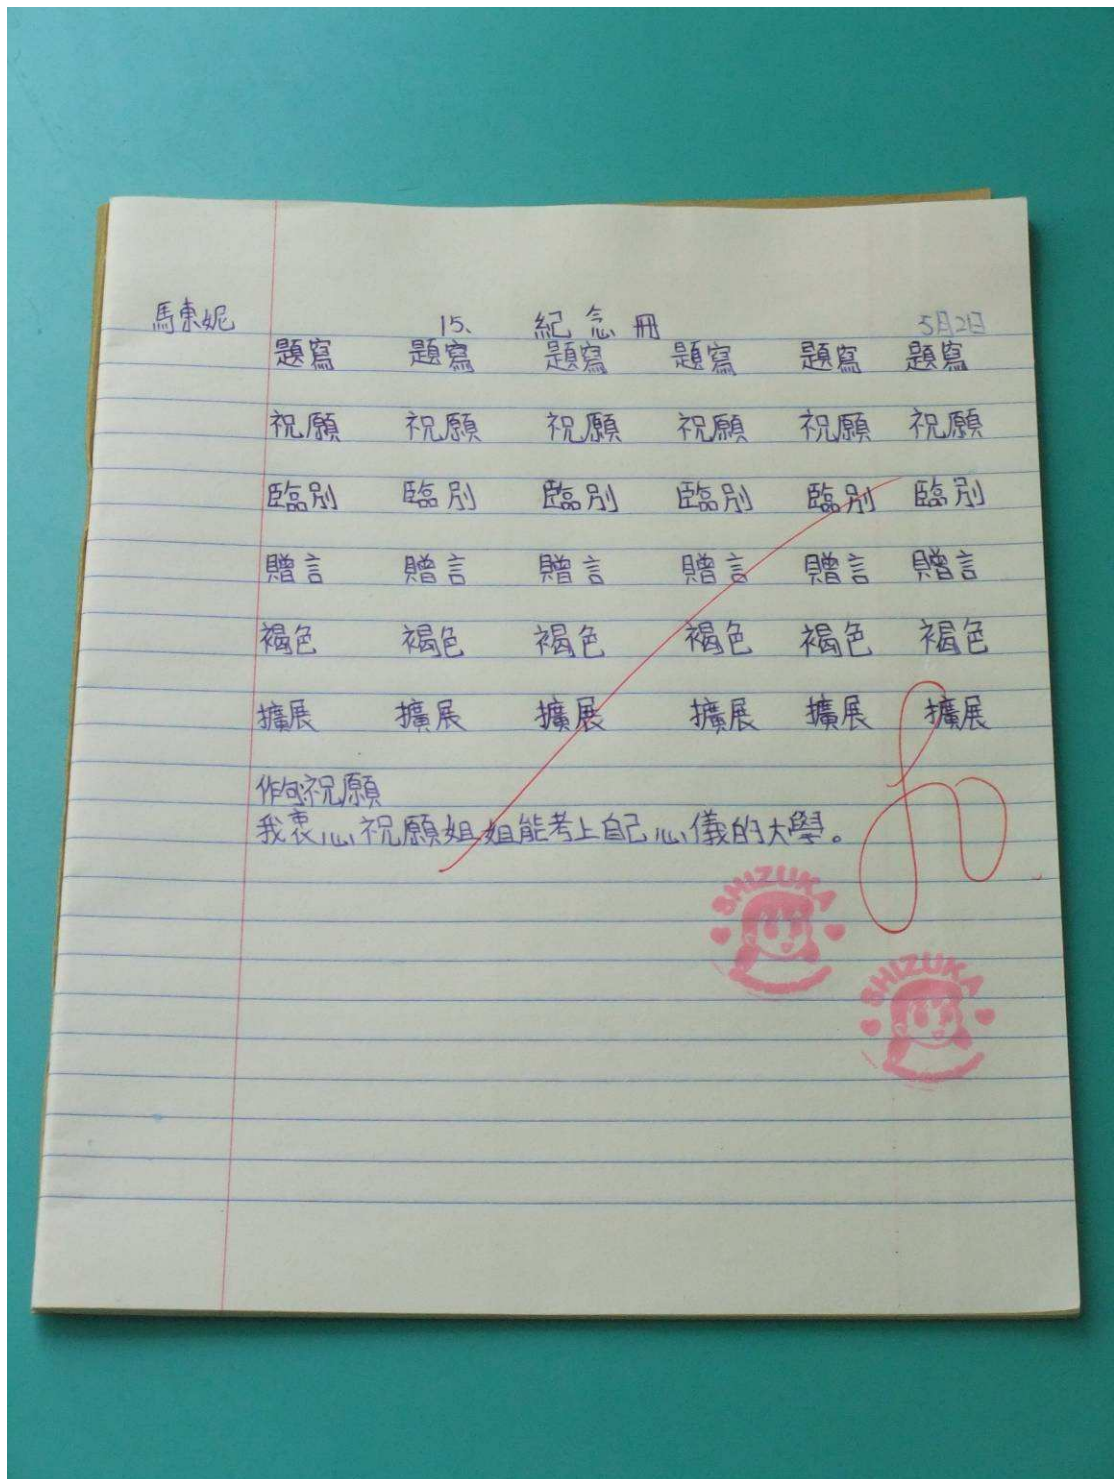 馬東妮 15. 紀念冊 5月2日
題寫 題寫 題寫 題寫 題寫 題寫
祝願 祝願 祝願 祝願 祝願 祝願
臨別 臨別 臨別 臨別 臨別 臨別
贈言 贈言 贈言 贈言 贈言 贈言
褐色 褐色 褐色 褐色 褐色 褐色
擴展 擴展 擴展 擴展 擴展 擴展
作句祝願
我衷心祝願姐姐能考上自己心儀的大學。
SHIZUKA
SHIZUKA